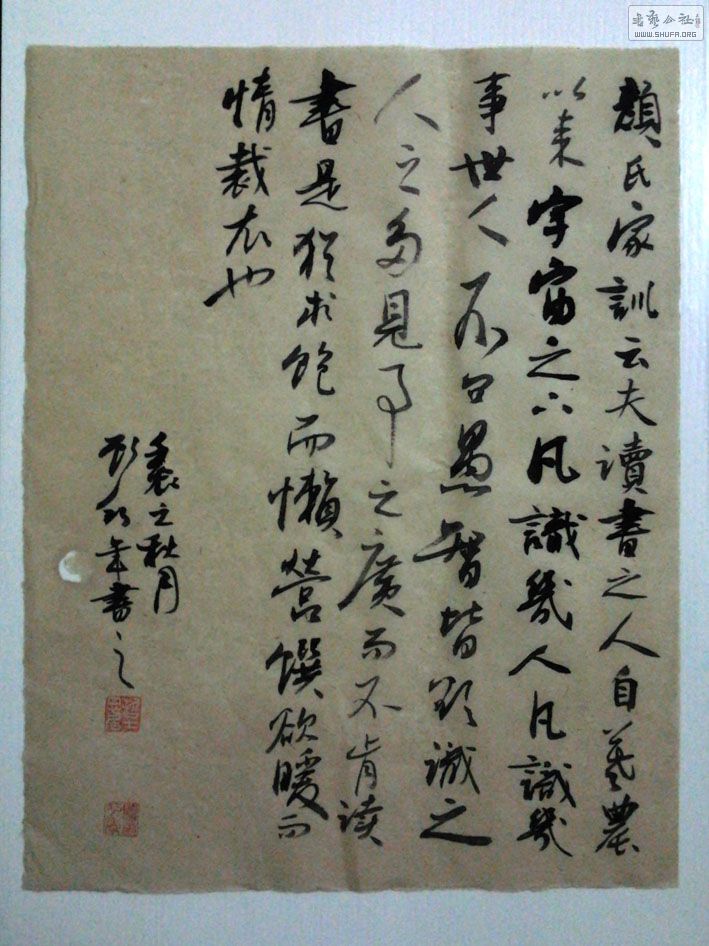 顏氏家訓云夫讀書之人自羲農
以来宇宙之下凡識幾人凡識幾
事世人不问愚智皆欲識之
人之多見事之廣而不肯读
書是犹求飽而懶營饌欲暖而
惰裁衣也
之秋月
年書之
书艺公社
WWW.SHUFA.ORG